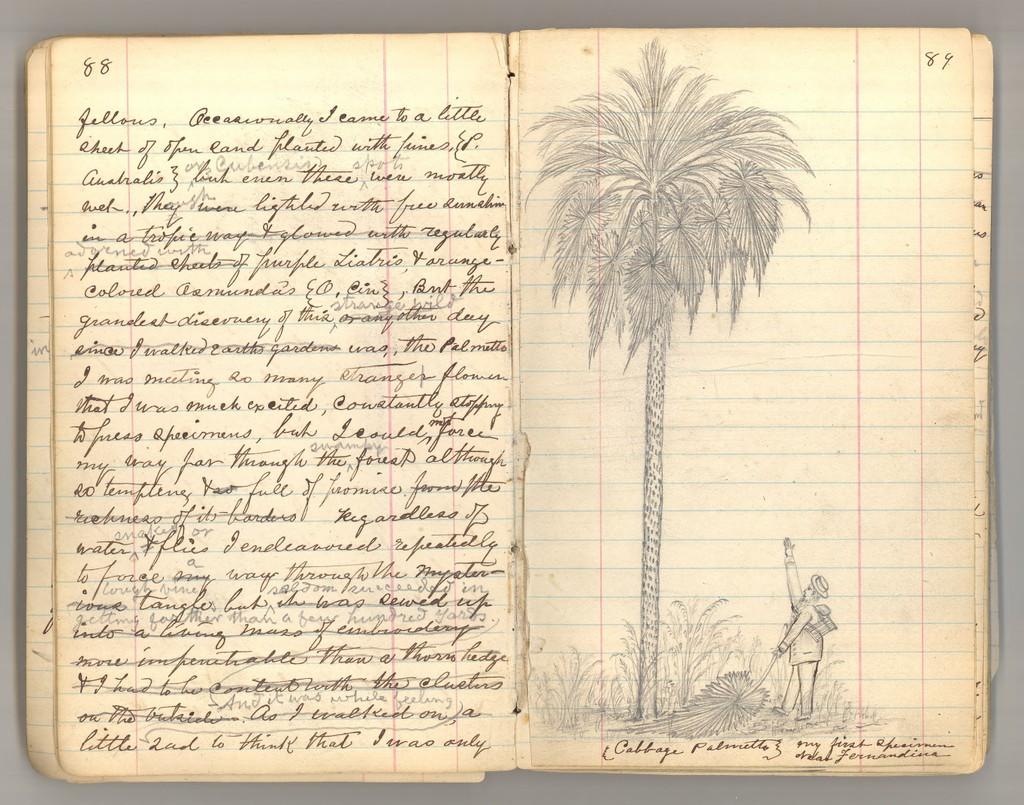 88
fellows. Occasionally I came to a little
sheet of open sand planted with pines, {P.
or Cubensis spots
Australis} but even these were mostly
wet., They were lighted with free sunshin
in a tropic way & glowed with regularly
adorned with
planted sheets of purple Liatris, & orange-
colored Osmundas {O, Cin}, But the
strange wild
grandest discovery of this, or any other day
in
since I walked Earths gardens was, the Palmetto
I was meeting so many stranger flowers
that I was much excited, constantly stopping
not
to press specimens, but I could, force
swampy
my way far through the, forest, although
so tempting & so full of promise from the
richness of its borders Regardless of
snakes or
water, & flies I endeavored repeatedly
a
to force my way through the myster-
tough vine seldom succeeded in
ious tangle, but it was sewed up
getting farther than a few hundred yards.
into a living mass of embroidery
more impenetrable than a thorn hedge
& I had to be content with the clusters
(And it was while feeling
on the outside. As I walked on, a
little sad to think that I was only
89
{Cabbage Palmetto} my first specimen
near Fernandina